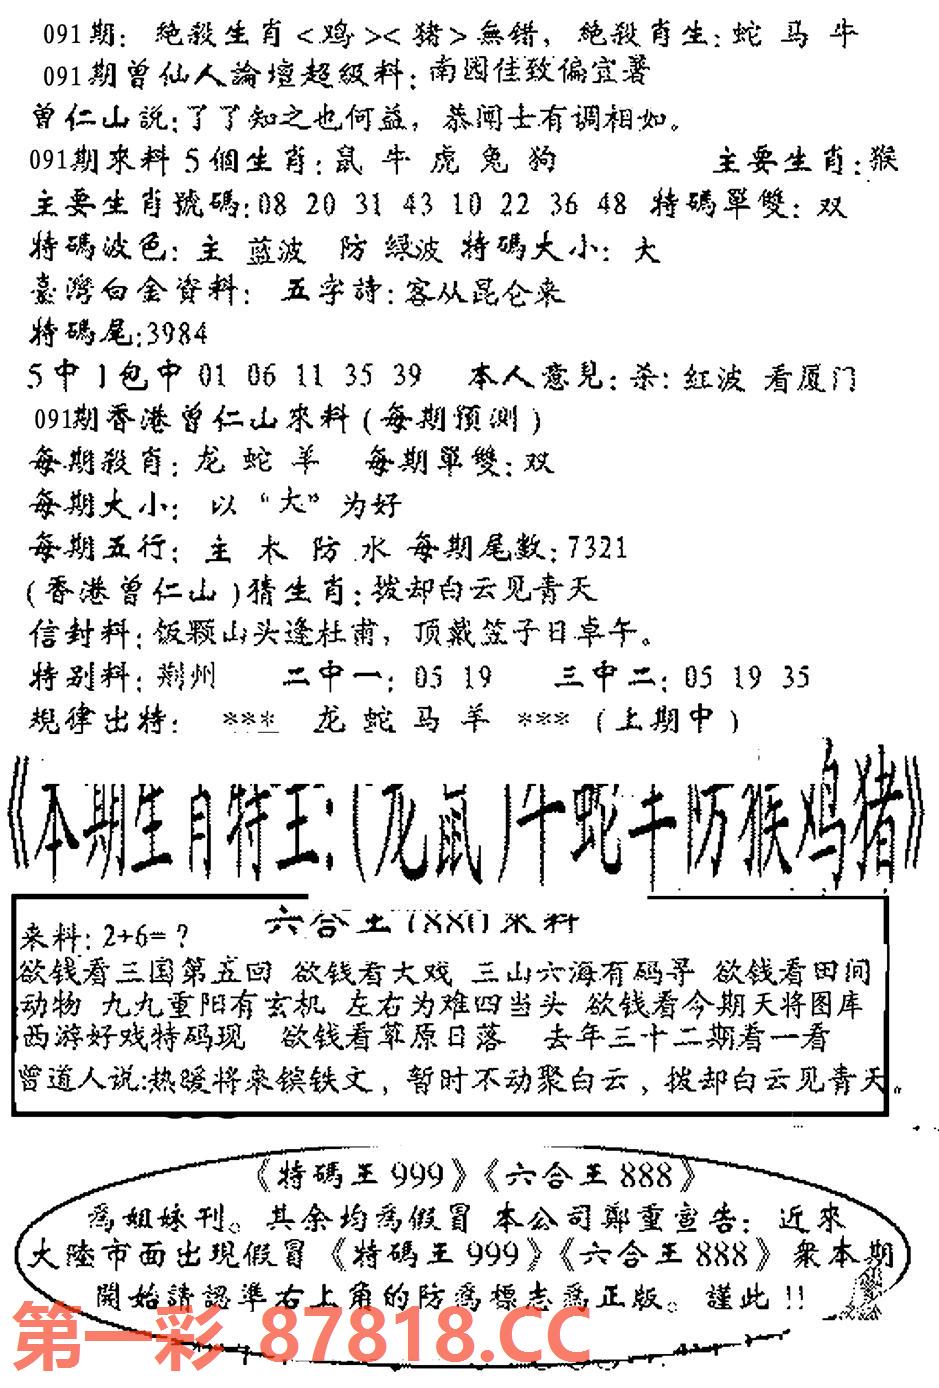 091期：絶殺生肖<鸡><猪>無错，絶殺肖生：蛇 马 牛
091期曾仙人論壇超級料：南园佳致偏宜著
曾仁山說：了了知之也何益，恭闻士有调相如。
091期來料 5 個生肖：鼠 牛 虎 兔 狗 主要生肖：猴
主要生肖號碼：08 20 31 43 10 22 36 48 特碼單雙：双
特碼波色：主 蓝波 防 绿波 特碼大小：大
臺灣白金資料： 五字詩：客从昆仑来
特碼尾：3984
5 中 1 包中 01 06 11 35 39 本人意見：杀：红波 看厦门
091期香港曾仁山來料（每期預測）
每期殺肖：龙 蛇 羊 每期單雙：双
每期大小：以“大”为好
每期五行：主 木 防 水 每期尾数：7321
（香港曾仁山）猜生肖：拨却白云见青天
信封料：饭颗山头逢杜甫，顶戴笠子日卓午。
特别料：荆州 二中一：05 19 三中二：05 19 35
規律出特： *** 龙 蛇 马 羊 *** （上期中）
《本期生肖特王：（龙鼠）牛蛇牛防猴鸡猪》
六合王7880來料
来料：2+6=？
欲钱看三国第五回 欲钱看大戏 三山六海有码寻 欲钱看田间
动物 九九重阳有玄机 左右为难四当头 欲钱看今期天将图库
西游好戏特码现 欲钱看草原日落 去年三十二期看一看
曾道人说：热暖将来镔铁文，暂时不动聚白云，拨却白云见青天。
《特碼王 999》《六合王 888》
爲姐妹刊。其余均爲假冒 本公司鄭重宣告：近來
大陸市面出現假冒《特碼王 999》《六合王 888》衆本期
開始請認準右上角的防爲標志爲正版。謹此!!
第一彩 87818.CC